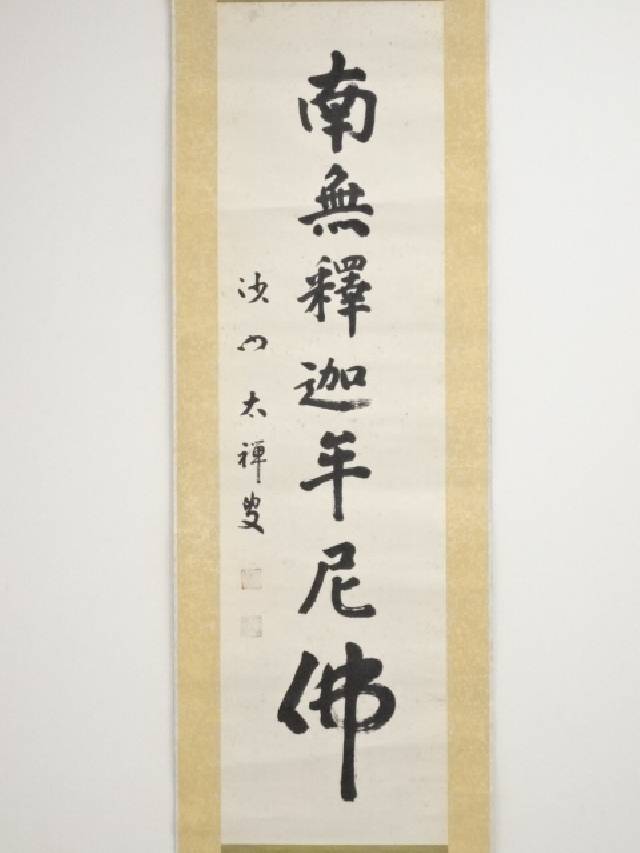 南無釋迦牟尼佛
沙門太禅叟